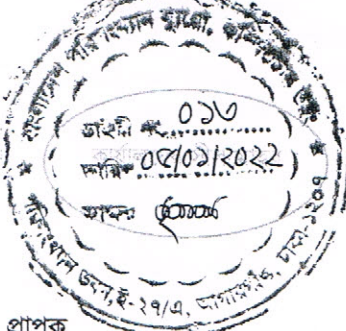 বাংলাদেশ পরিসংখ্যান ব্যুরো,
ডাইরি নং ০১৩
তারিখ ০৫/০১/২০২২
পরিসংখ্যান ভবন, ই-২৭/এ, আগারগাঁও, ঢাকা-১২০৭
প্রাপক